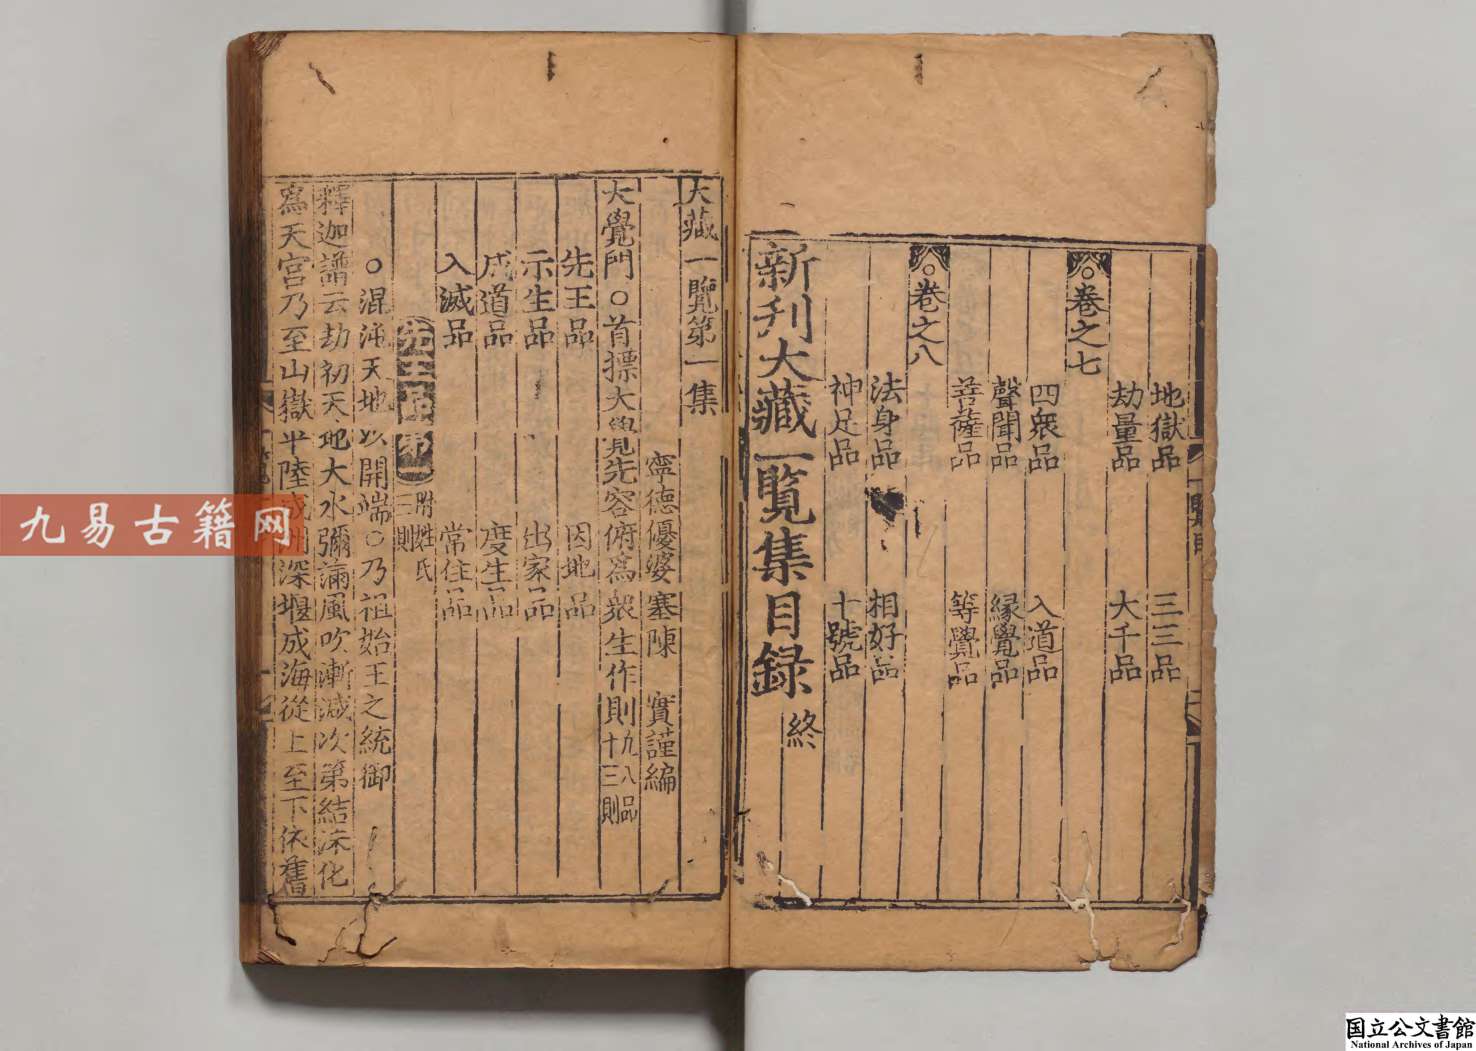 地獄品　三三品
劫量品　大千品
○卷之七
四衆品　入道品
聲聞品　緣覺品
菩薩品　等覺品
○卷之八
法身品　相好品
神足品　十號品
新刊大藏一覧集目録終
大藏一覽第一集
寧德優婆塞陳　實謹編
大覺門○首摽大覺先容俯爲衆生作則九八品十三則
先王品　因地品
示生品　出家品
成道品　度生品
入滅品　常住品
先王品　附姓氏三則
○混沌天地以開端○乃祖始王之統御
釋迦譜云劫初天地大水彌滿風吹漸減次第結沫化
爲天宮乃至山嶽平陸成洲深堰成海從上至下依舊
九易古籍网
国立公文書館
National Archives of Japan